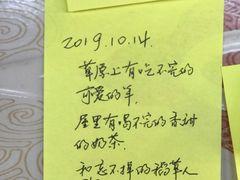 2019.10.14.
草原上有吃不完的
可爱的羊,
屋里有喝不完的香甜
的奶茶,
和忘不掉的稻草人